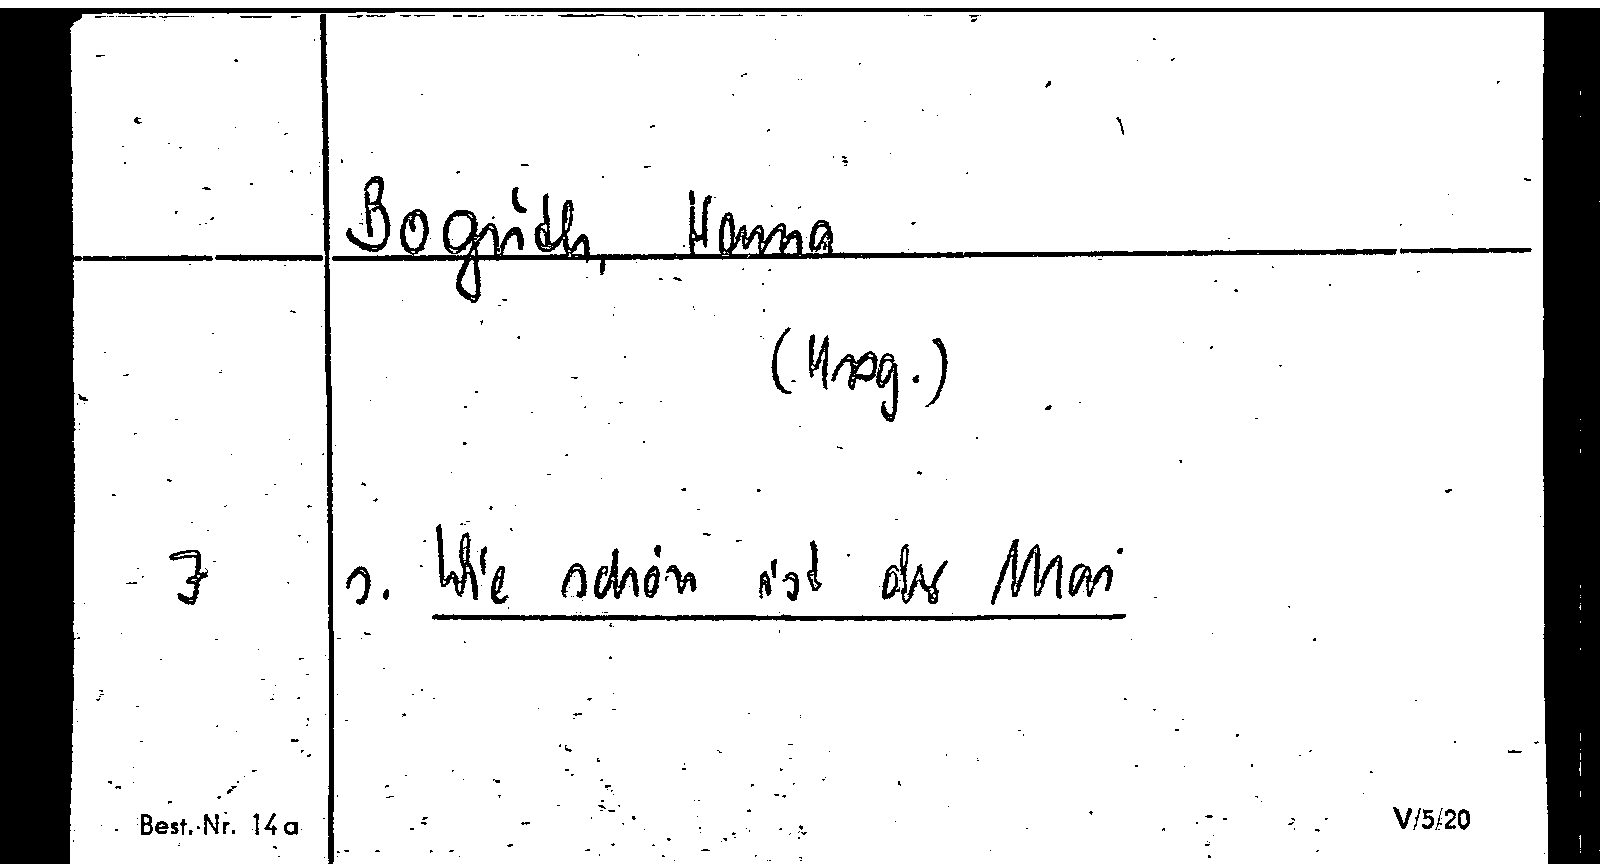 Bognith, Hanna
(Hrsg.)
J s. Wie schön ist der Mai
Best.-Nr. 14a V/5/20